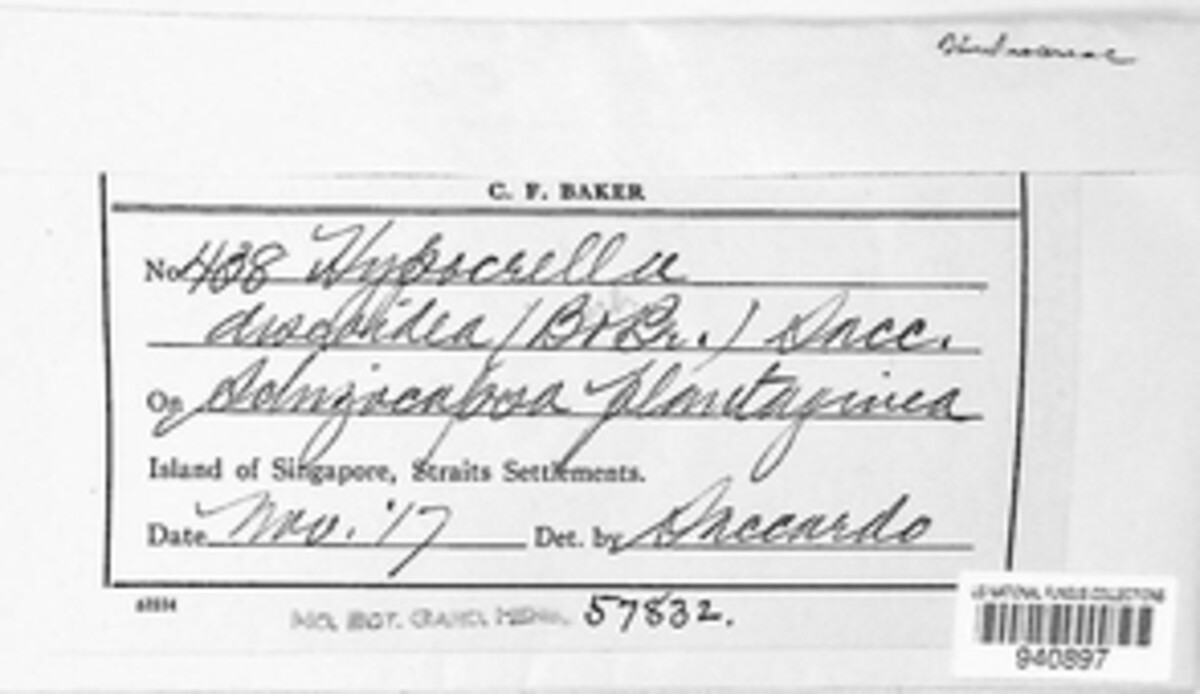 C. F. BAKER
No. 438 Hypocrella
discoidea (B & Br.) Sacc.
On Schizocapsa plantaginea
Island of Singapore, Straits Settlements.
Date Nov. '17 Det. by Saccardo
MO. BOT. GARD. HERB. 57832.
US NATIONAL FUNGUS COLLECTIONS
940897